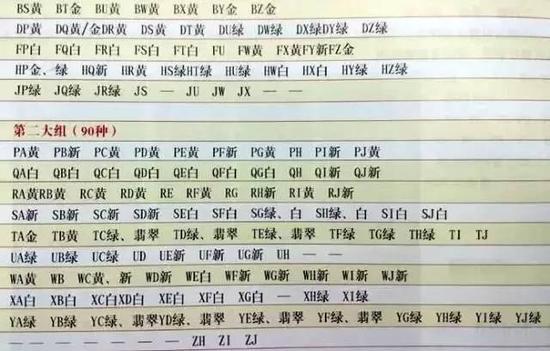 BS黄 BT金 BU黄 BW黄 BX黄 BY金 BZ金
DP黄 DQ黄/金DR黄 DS黄 DT黄 DU绿 DW绿 DX绿DY绿 DZ绿
FP白 FQ白 FR白 FS白 FT白 FU FW黄 FX黄FY新FZ金
HP金、绿 HQ新 HR黄 HS绿HT绿 HU绿 HW白 HX白 HY绿 HZ绿
JP绿 JQ绿 JR绿 JS — JU JW JX — —
第二大组（90种）
PA黄 PB新 PC黄 PD黄 PE黄 PF新 PG黄 PH PI新 PJ黄
QA白 QB白 QC白 QD白 QE白 QF白 QG白 QH QI新 QJ新
RA黄RB黄 RC黄 RD黄 RE RF黄 RG RH新 RI黄 RJ新
SA新 SB新 SC新 SD新 SE白 SF白 SG绿、白 SH绿、白 SI白 SJ白
TA金 TB黄 TC绿、翡翠 TD绿、翡翠 TE绿、翡翠 TF绿 TG绿 TH绿 TI TJ
UA绿 UB绿 UC绿 UD UE新 UF新 UG新 UH — —
WA黄 WB WC黄、新 WD新 WE白 WF新 WG新 WH新 WI新 WJ新
XA白 XB白 XC白XD白 XE白 XF白 XG白 — XH绿 XI绿
YA绿 YB绿 YC绿、翡翠YD绿、翡翠 YE绿、翡翠 YF绿、翡翠 YG绿 YH绿 YI绿 YJ绿
— — — — — — — ZH ZI ZJ